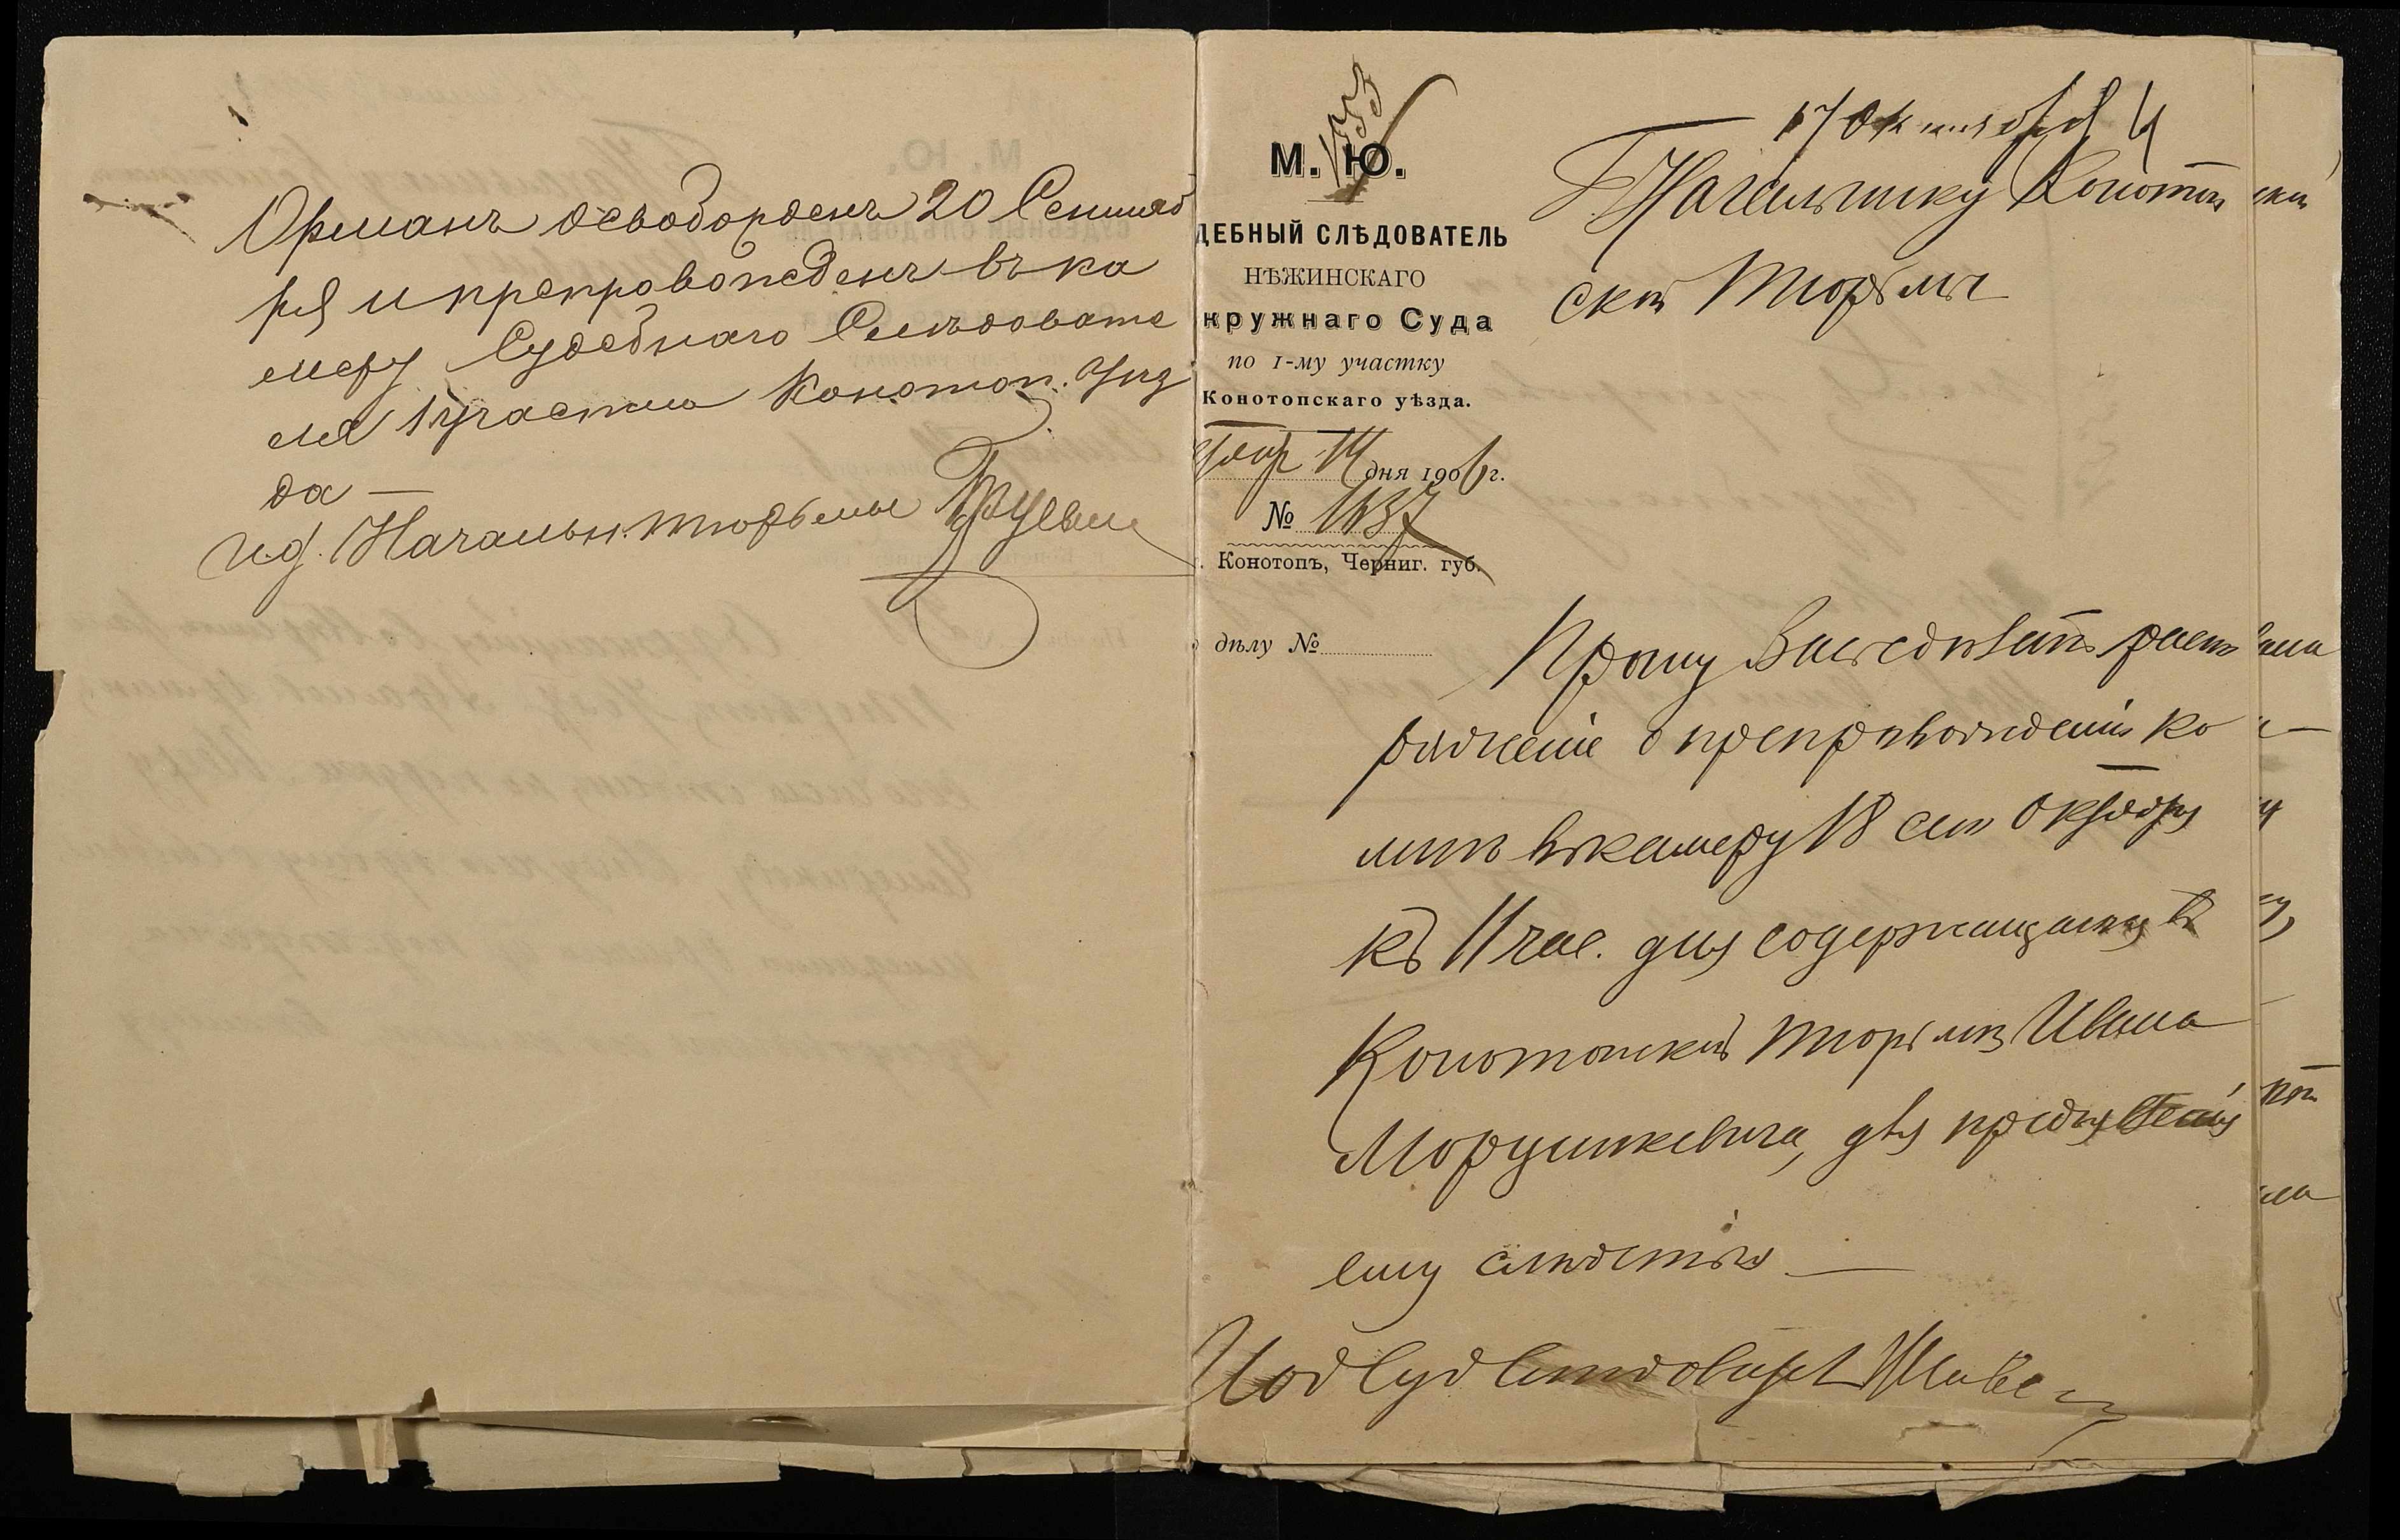 Орманъ освобожденъ 20 Сентяб
ря и препровожденъ въ ка
меру Судебнаго Следовате
ля 1 участка Конотоп. Уез
да —
и.д. Начальн. тюрьмы
М. Ю.
ДЕБНЫЙ СЛѢДОВАТЕЛЬ
НѢЖИНСКАГО
кружнаго Суда
по 1-му участку
Конотопскаго уѣзда.
14 дня 1906 г.
№ 1637
. Конотопъ, Черниг. губ.
дѣлу №
17 Октября
Г. Начальнику Конотоп
ской Тюрьмы
Прошу Васъ сдѣлать распо
ряженіе о препровожденіи ко
мнѣ въ камеру 18 сего Октября
къ 11 час. дня содержащагося въ
Конотопской тюрьмѣ Ивана
для предъявленія
ему слѣдствія —
Суд Слѣдователь